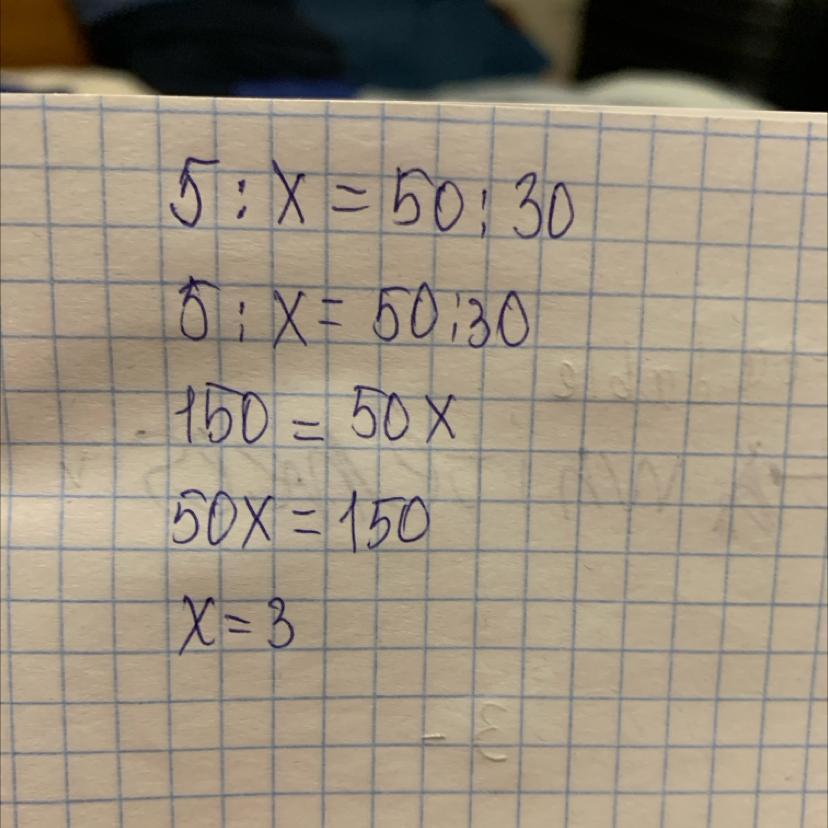 5 : x = 50 : 30
5 : x = 50 : 30
150 = 50x
50x = 150
x = 3